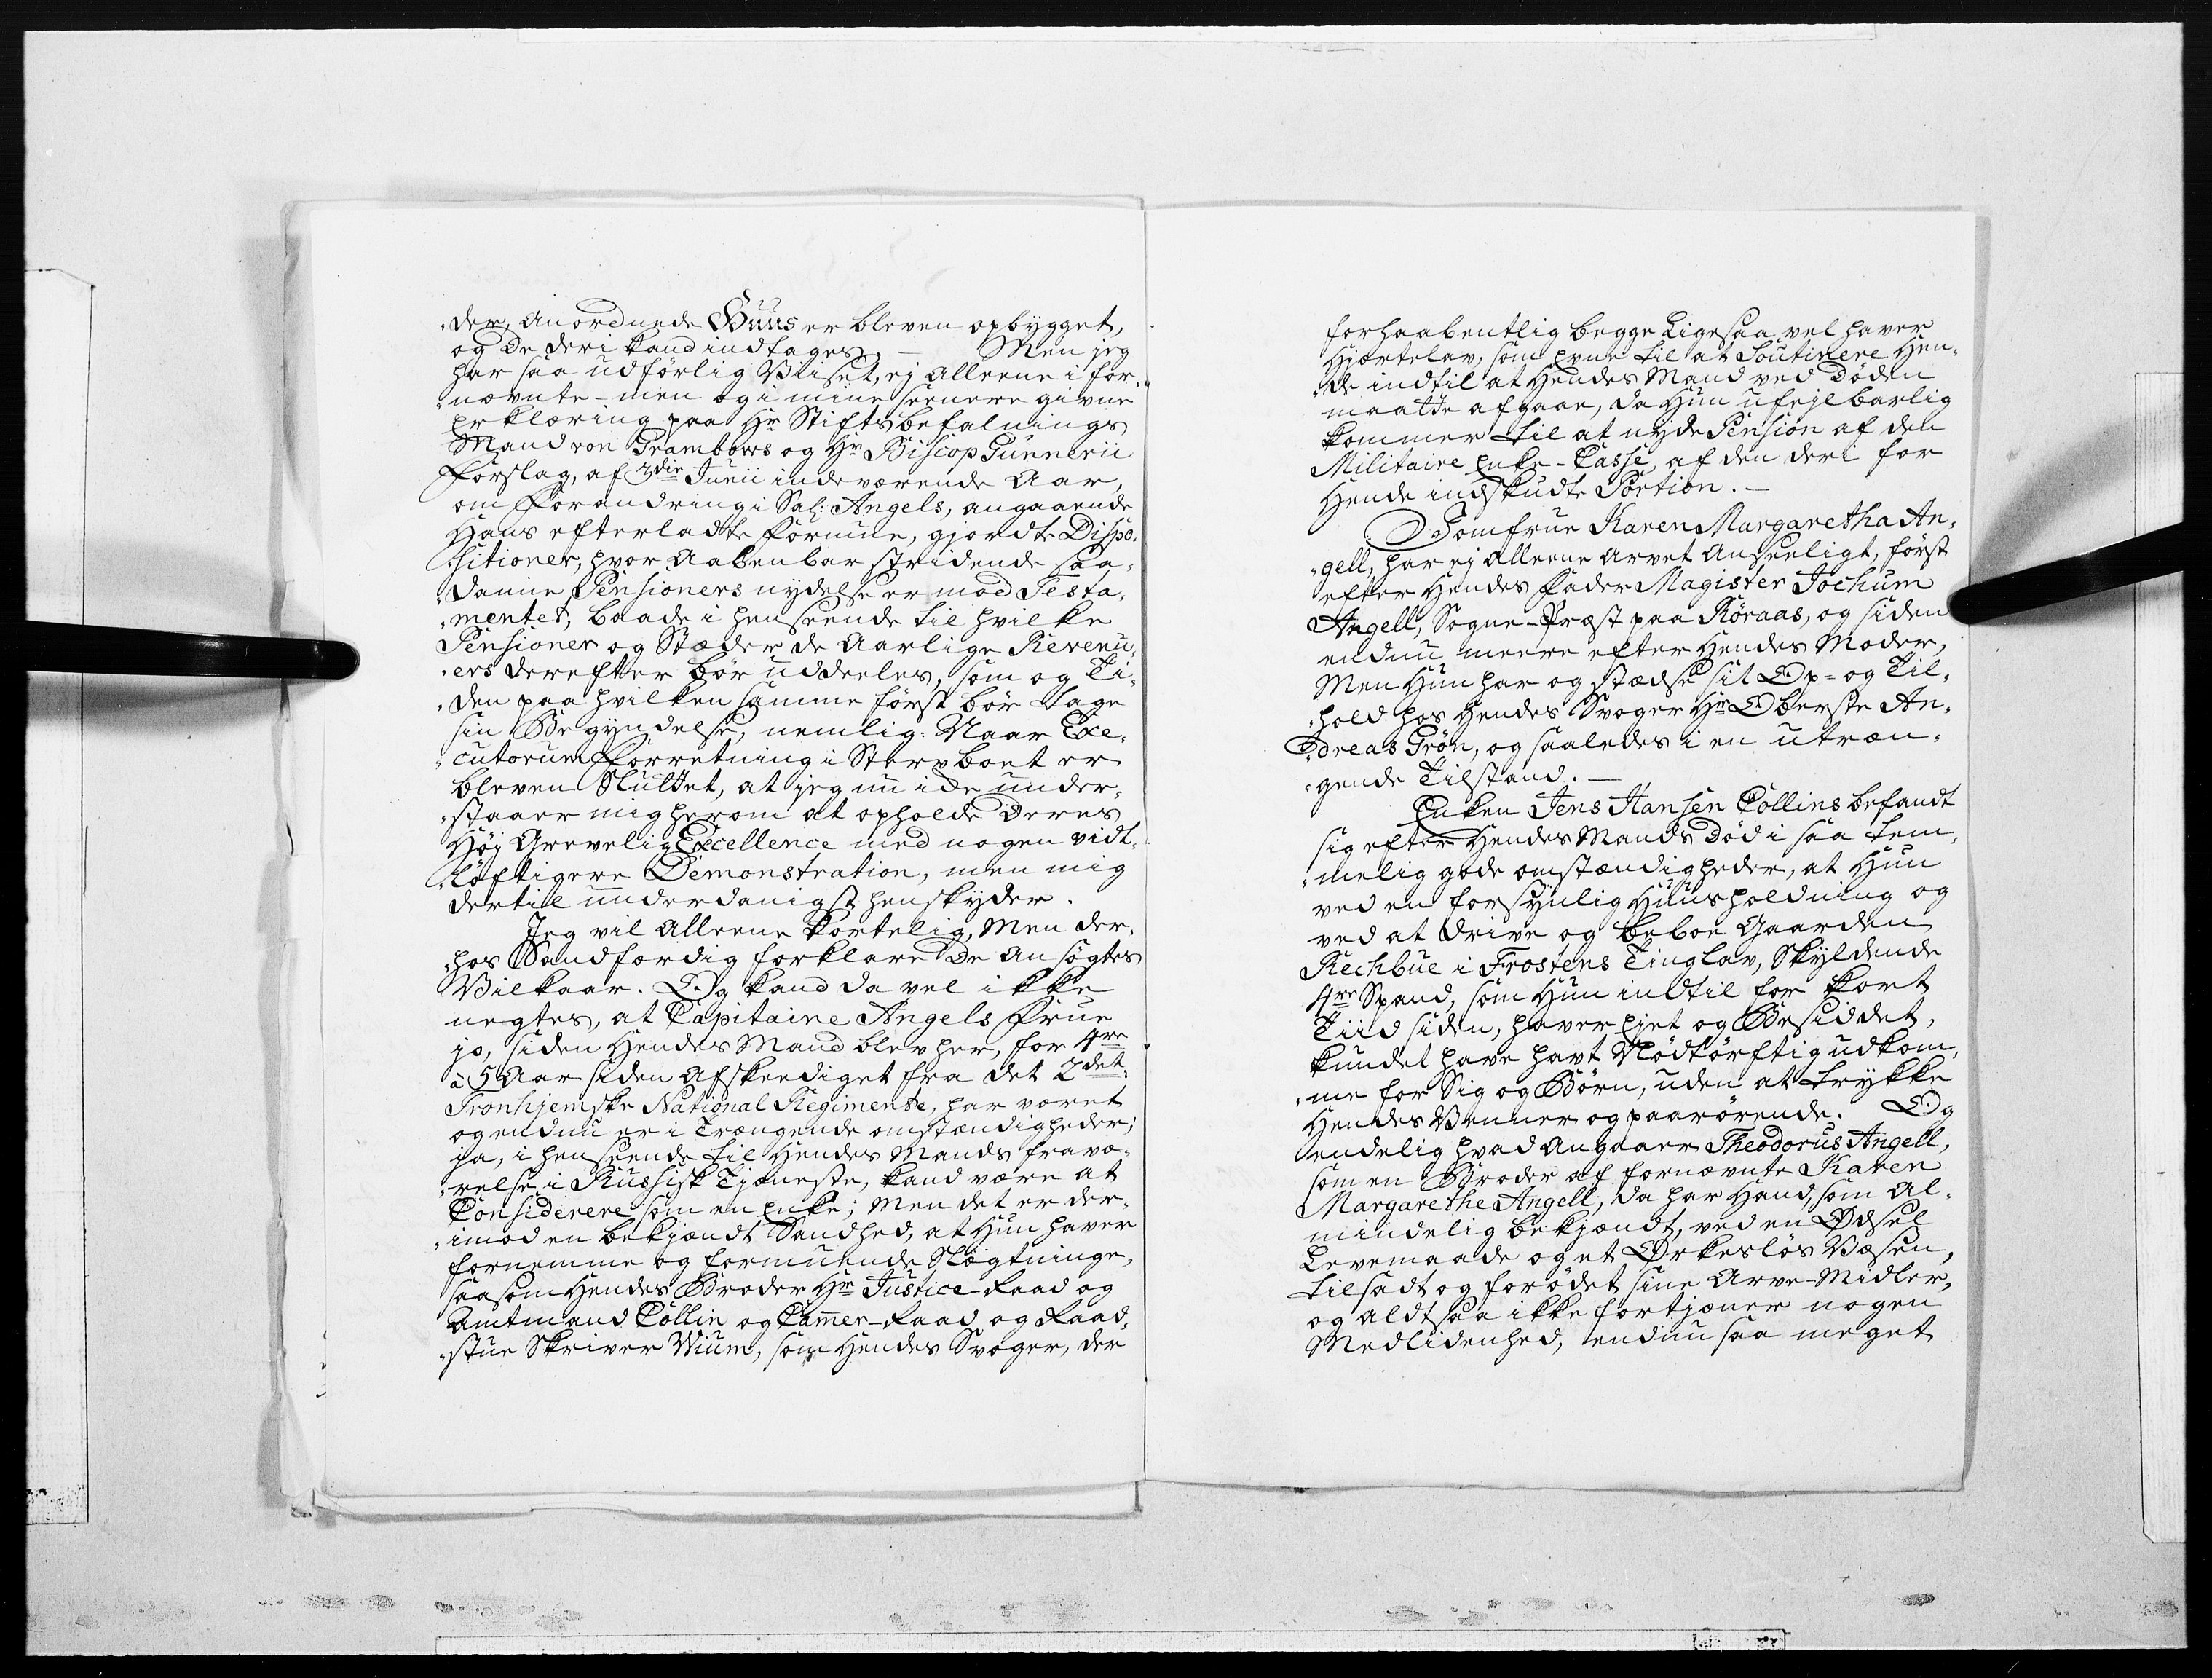 "der, anordnede Huus er bleven opbygget,
og de deri kand indtages. — Men jeg
har saa udförlig Viiset, ej alleene i for,,
"nævnte - men og i mine seenere givne
Erklæring paa Hr Stiftsbefalnings
Mand von Grambows og Hr Biscop Gunnerii
Forslag, af 3die Junii indeværende Aar,
om Forandring i Sal: Angels, angaaende
Hans efterladte Formue, gjordte Dispo,,
"sitioner, hvor Aabenbar stridende saa,,
"danne Pensioners nydelse er mod Testa,,
"mentet, baade i henseende til hvilke
Pensioner og Stæder de Aarlige Revenu,,
"ers derefter bör uddeeles, som og Ti,,
"den paa hvilken samme först bör tage
sin Begyndelse, nemlig: Naar Exe,,
"cutorum Forretning i Stervboet er
bleven Sluttet, at jeg nu icke under,,
"staaer mig herom at opholde Deres
Höj Grevelig Excellence med nogen vidt,,
"löftigere Demonstration, men mig
dertil underdanigst henskyder.
Jeg vil alleene kortelig, men der,,
"hos Sandfærdig forklare de ansögtes
Vilkaar. Og kand da vel ikke
negtes, at Capitaine Angels Frue
jo, siden Hendes Mand blev her, for 4re
à 5 Aar siden afskeediget fra det 2det
Tronhjemske National Regimente, har været
og endnu er i Trængende omstændigheder;
ja, i henseende til Hendes Mands fravæ,,
"relse i Russisk Tjeneste, kand være at
Considerere som en Enke; Men det er der,,
"imod en bekjændt Sandhed, at Hun haver
fornemme og formuende Slægtninge,
saasom Hendes Broder Hr Justice-Raad og
Amtmand Collin og Camer-Raad og Raad,,
"stue Skriver Wium, som Hendes Svoger, der
forhaabentlig begge Ligesaa vel haver
Hjertelav, som Evne til at Soutinere Hen,,
"de indtil at Hendes Mand ved Döden
maatte afgaae, da Hun ufejlbarlig
kommer til at nyde Pension af den
Militaire Enke-Casse, af den deri for
Hende indskudte Portion. —
Jomfrue Karen Margaretha An,,
"gell, har ej alleene arvet Anseeligt, först
efter Hendes Fader Magister Jochum
Angell, Sogne-Præst paa Röraas, og siden
endnu meere efter Hendes Moder,
Men Hun har og stædse sit Op- og Til,,
"hold hos Hendes Svoger Hr Oberste An,,
"dreas Grön, og saaledes i en utræn,,
"gende Tilstand. —
Enken Jens Hansen Collins befandt
sig efter Hendes Mands Död i saa tem,,
"melig gode omstændigheder, at Hun
ved en forsynlig Huusholdning og
ved at drive og beboe Gaarden
Rechbue i Frostens Tinglav, Skyldende
4re Spand, som Hun indtil for kort
Tiid siden, haver Ejet og Besiddet,
kundet have havt Nödtörftig udkom,,
"me for Sig og Börn, uden at trykke
Hendes Venner og paarörende. Og
endelig hvad angaaer Theodorus Angell,
som en Broder af fornævnte Karen
Margarethe Angell, da har Hand, som Al,,
mindelig bekjændt, ved en Ödsel
Levemaade og et Örkeslös Væsen,
tilsadt og forödet sine Arve-Midler,
og aldtsaa ikke fortjæner nogen
Medlidenhed, endnu saa meget